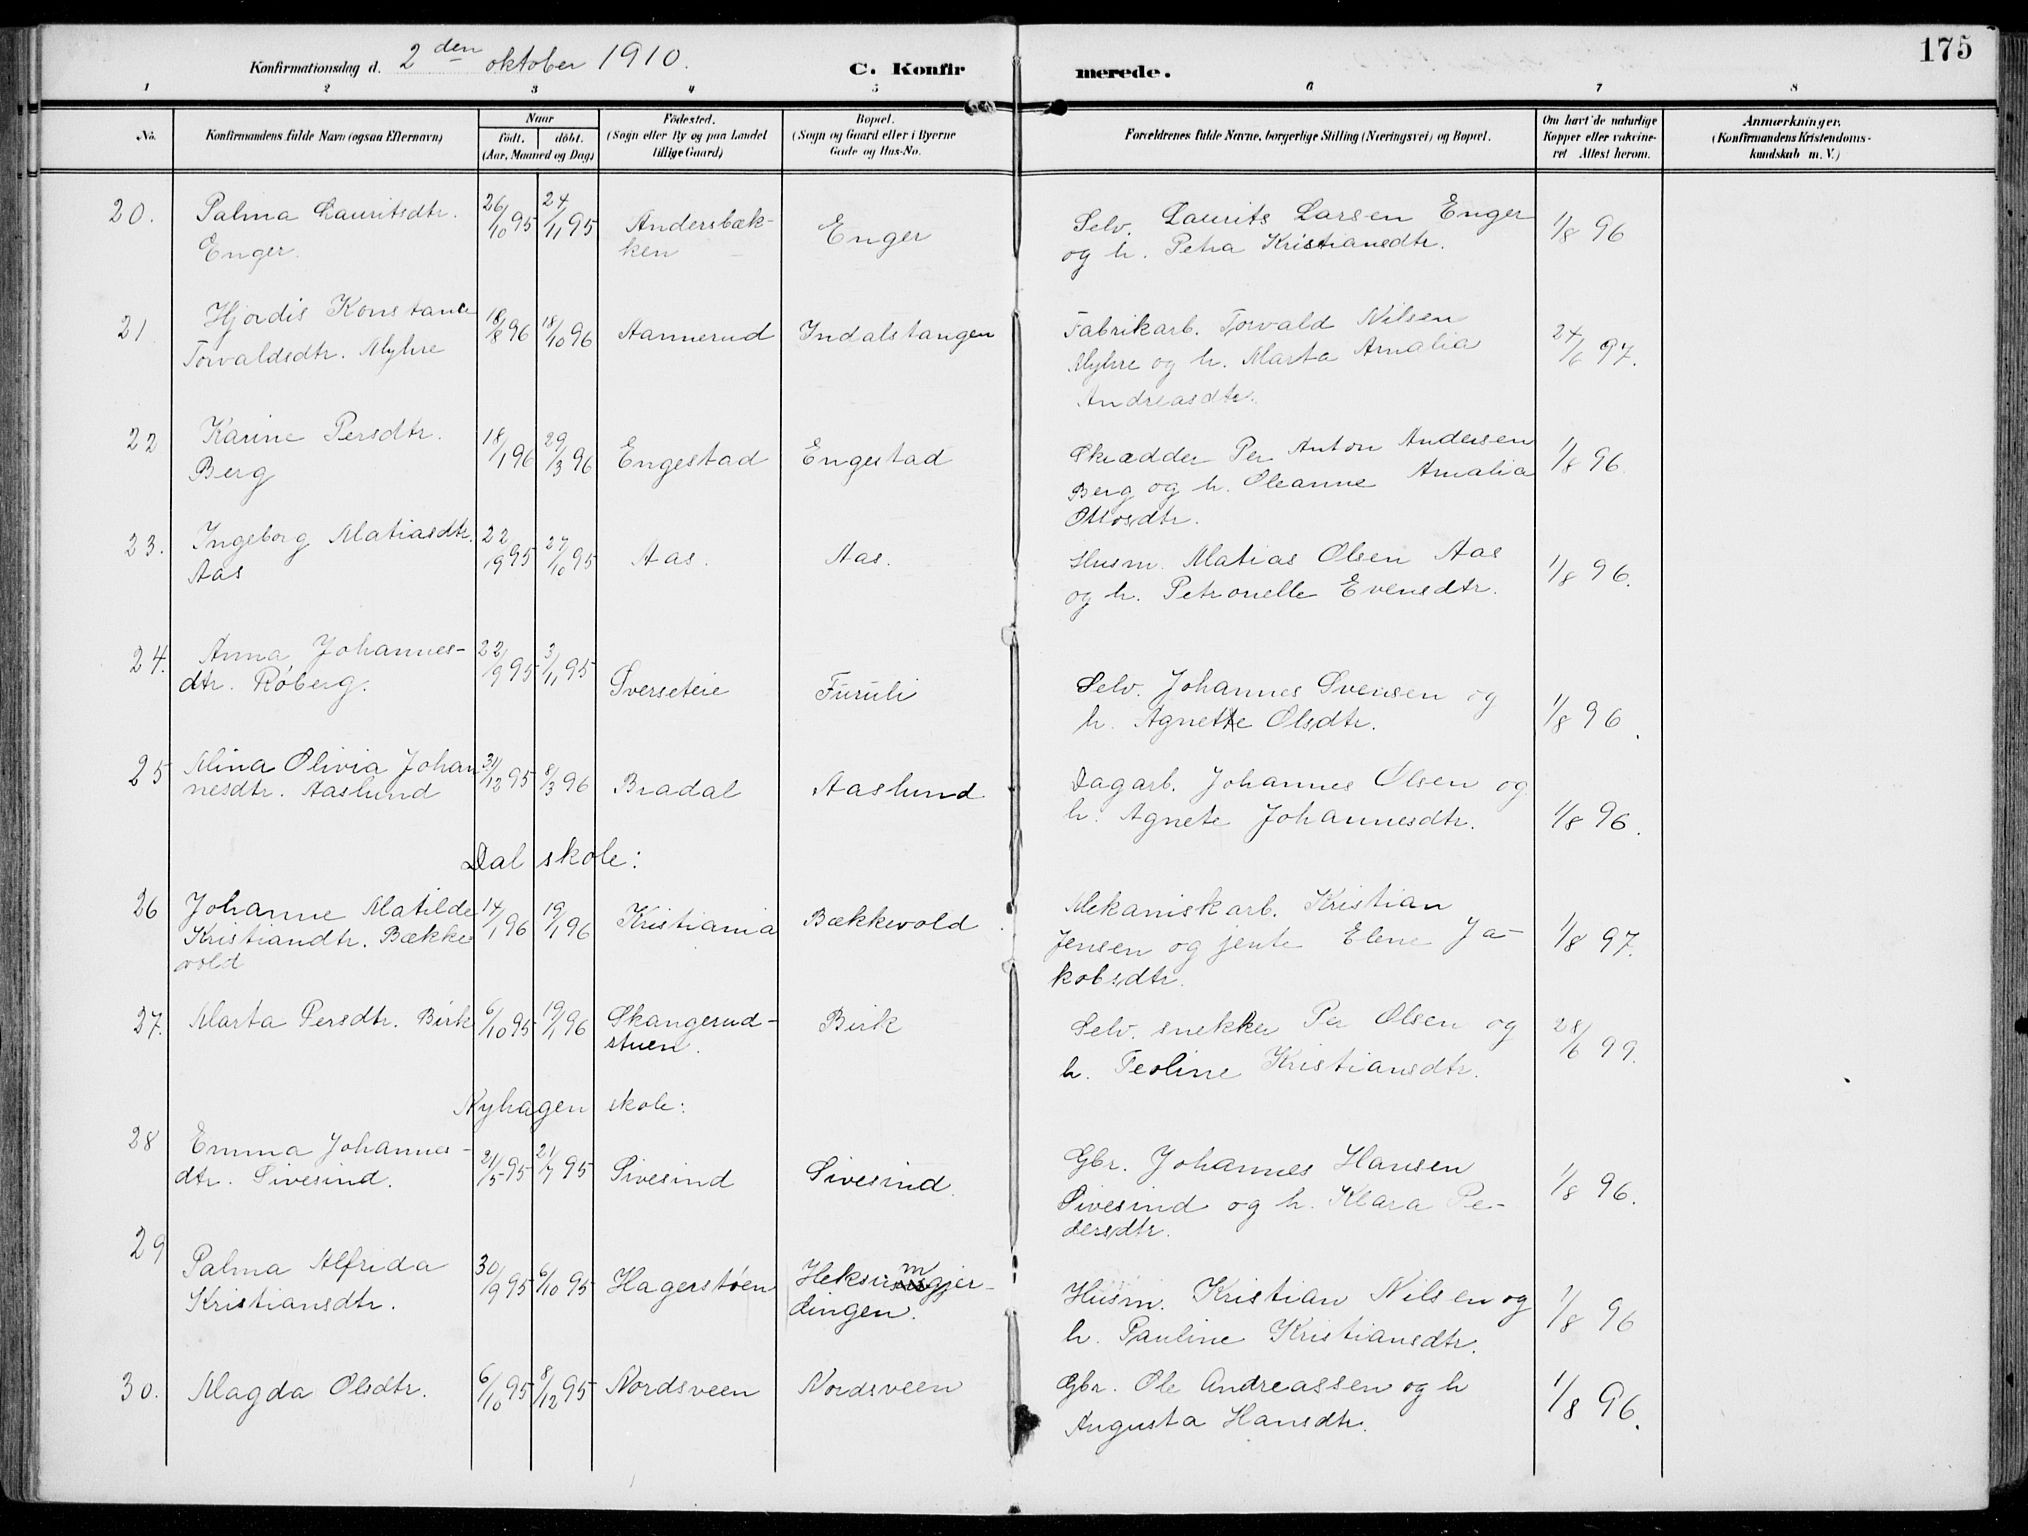 Konfirmationsdag d. 2den oktober 1910.
C. Konfirmerede.
175
1 2 3 4 5 6 7 8
No. Konfirmandens fulde Navn (ogsaa Efternavn) Naar født. døbt. (Aar, Maaned og Dag)
Fødested. (Sogn eller By og paa Landet tillige Gaard)
Bopæl. (Sogn og Gaard eller i Byerne Gade og Hus-No.
Forældrenes fulde Navne, borgerlige Stilling (Næringsvei) og Bopæl.
Om havt de naturlige Kopper eller vakcineret Attest herom.
Anmærkninger. (Konfirmandens Kristendomskundskab m. V.)
20. Palma Lauritsdtr. 26/10 95 24/11 95 Andersbæk- Enger Selv. Laurits Larsen Enger 1/8 96
Enger. ken og h. Petra Kristiansdtr.
21 Hjordis Konstance 18/8 96 18/10 96 Aannerud Indalstangen Fabrikarb. Torvald Nilsen 24/6 97.
Torvaldsdtr. Myhre Myhre og h. Marta Amalia
Andreasdtr.
22 Karine Persdtr. 18/1 96 29/3 96 Engestad Engestad Skrædder Per Anton Andersen 1/8 96.
Berg Berg og h. Oleanne Amalia
Ottosdtr.
23. Ingeborg Matiasdtr. 22/9 95 27/10 95 Aas. Aas. Husm. Matias Olsen Aas 1/8 96.
Aas og h. Petronelle Evensdtr.
24. Anna Johannes- 22/9 95 3/11 95 Sverseteie Furuli Selv. Johannes Svensen og 1/8 96.
dtr. Røberg. h. Agnette Olsdtr.
25 Mina Olivia Johan 31/12 95 8/3 96 Bradal Aaslund Dagarb. Johannes Olsen og 1/8 96.
nesdtr. Aaslund h. Agnete Johannesdtr.
Dal skole:
26 Johanne Matilde 14/1 96 19/1 96 Kristiania Bækkevold Mekaniskarb. Kristian 1/8 97.
Kristiandtr. Bække Jensen og jente Elene Ja-
vold kobsdtr.
27. Marta Persdtr. Birk 6/10 95 19/1 96 Skangerud- Birk Selv. snekker Per Olsen og 28/6 99.
stuen. h. Teoline Kristiansdtr.
Nyhagen skole:
28 Emma Johannes- 21/5 95 21/7 95 Sivesind Sivesind. Gbr. Johannes Hansen 1/8 96.
dtr. Sivesind. Sivesind og h. Klara Pe-
dersdtr.
29 Palma Alfrida 30/9 95 6/10 95 Hagerstøen Heksumgjer- Husm. Kristian Nilsen og 1/8 96
Kristiansdtr. dingen. h. Pauline Kristiansdtr.
30. Magda Olsdtr. 6/10 95 8/12 95 Nordsveen Nordsveen Gbr. Ole Andreassen og h 1/8 96.
Augusta Hansdtr.